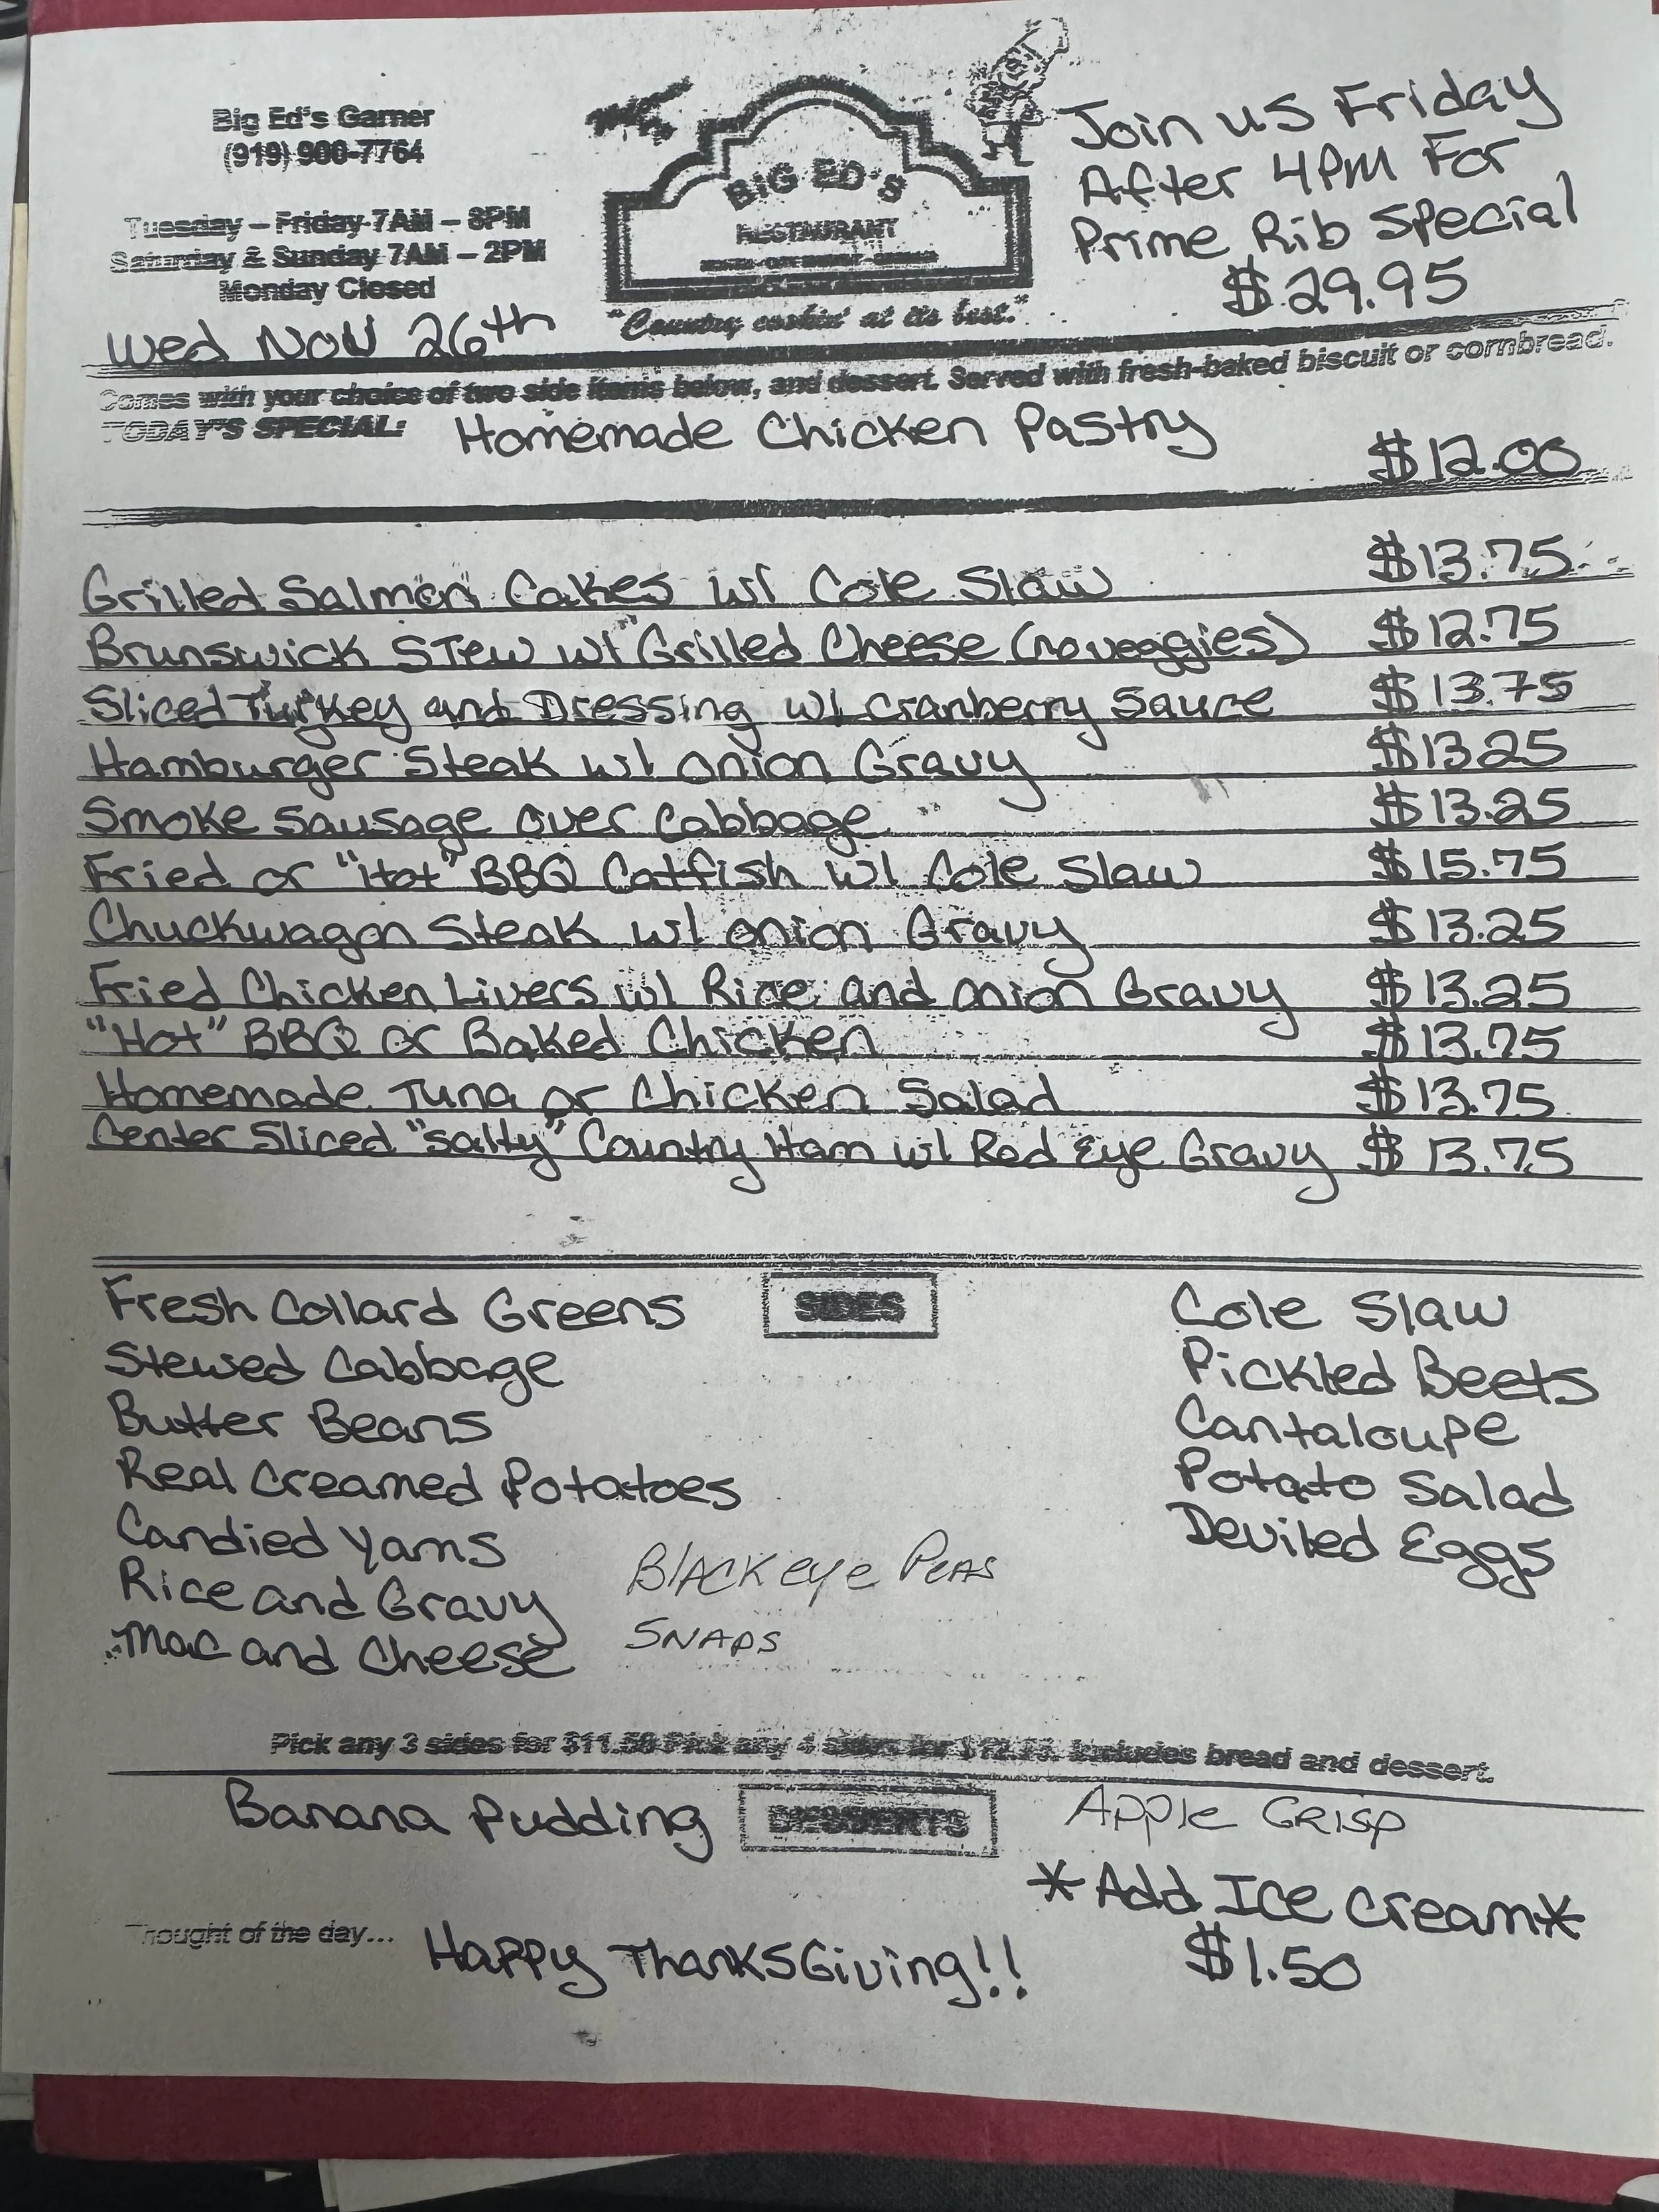 Big Ed's Garner
(919) 900-7764
Tuesday – Friday 7AM – 8PM
Saturday & Sunday 7AM – 2PM
Monday Closed
Wed Nov 26th
BIG ED'S
RESTAURANT
"Country cookin' at its best."
Join us Friday
After 4PM For
Prime Rib Special
$29.95
Comes with your choice of two side items below, and dessert. Served with fresh-baked biscuit or cornbread.
TODAY'S SPECIAL: Homemade Chicken Pastry
$12.00
Grilled Salmon Cakes w/ Cole Slaw $13.75
Brunswick Stew w/ Grilled Cheese (no veggies) $12.75
Sliced Turkey and Dressing w/ Cranberry Sauce $13.75
Hamburger Steak w/ onion Gravy $13.25
Smoke Sausage over Cabbage $13.25
Fried or "Hot" BBQ Catfish w/ Cole Slaw $15.75
Chuckwagon Steak w/ onion Gravy $13.25
Fried Chicken Livers w/ Rice and onion Gravy $13.25
"Hot" BBQ or Baked Chicken $13.75
Homemade Tuna or Chicken Salad $13.75
Center Sliced "Salty" Country Ham w/ Red Eye Gravy $13.75
SIDES
Fresh Collard Greens
Stewed Cabbage
Butter Beans
Real Creamed Potatoes
Candied Yams
Rice and Gravy
Mac and Cheese
Blackeye Peas
Snaps
Cole Slaw
Pickled Beets
Cantaloupe
Potato Salad
Deviled Eggs
Pick any 3 sides for $11.50 Pick any 4 sides for includes bread and dessert.
DESSERTS
Banana Pudding
Apple Crisp
*Add Ice Cream*
$1.50
Thought of the day... Happy ThanksGiving!!